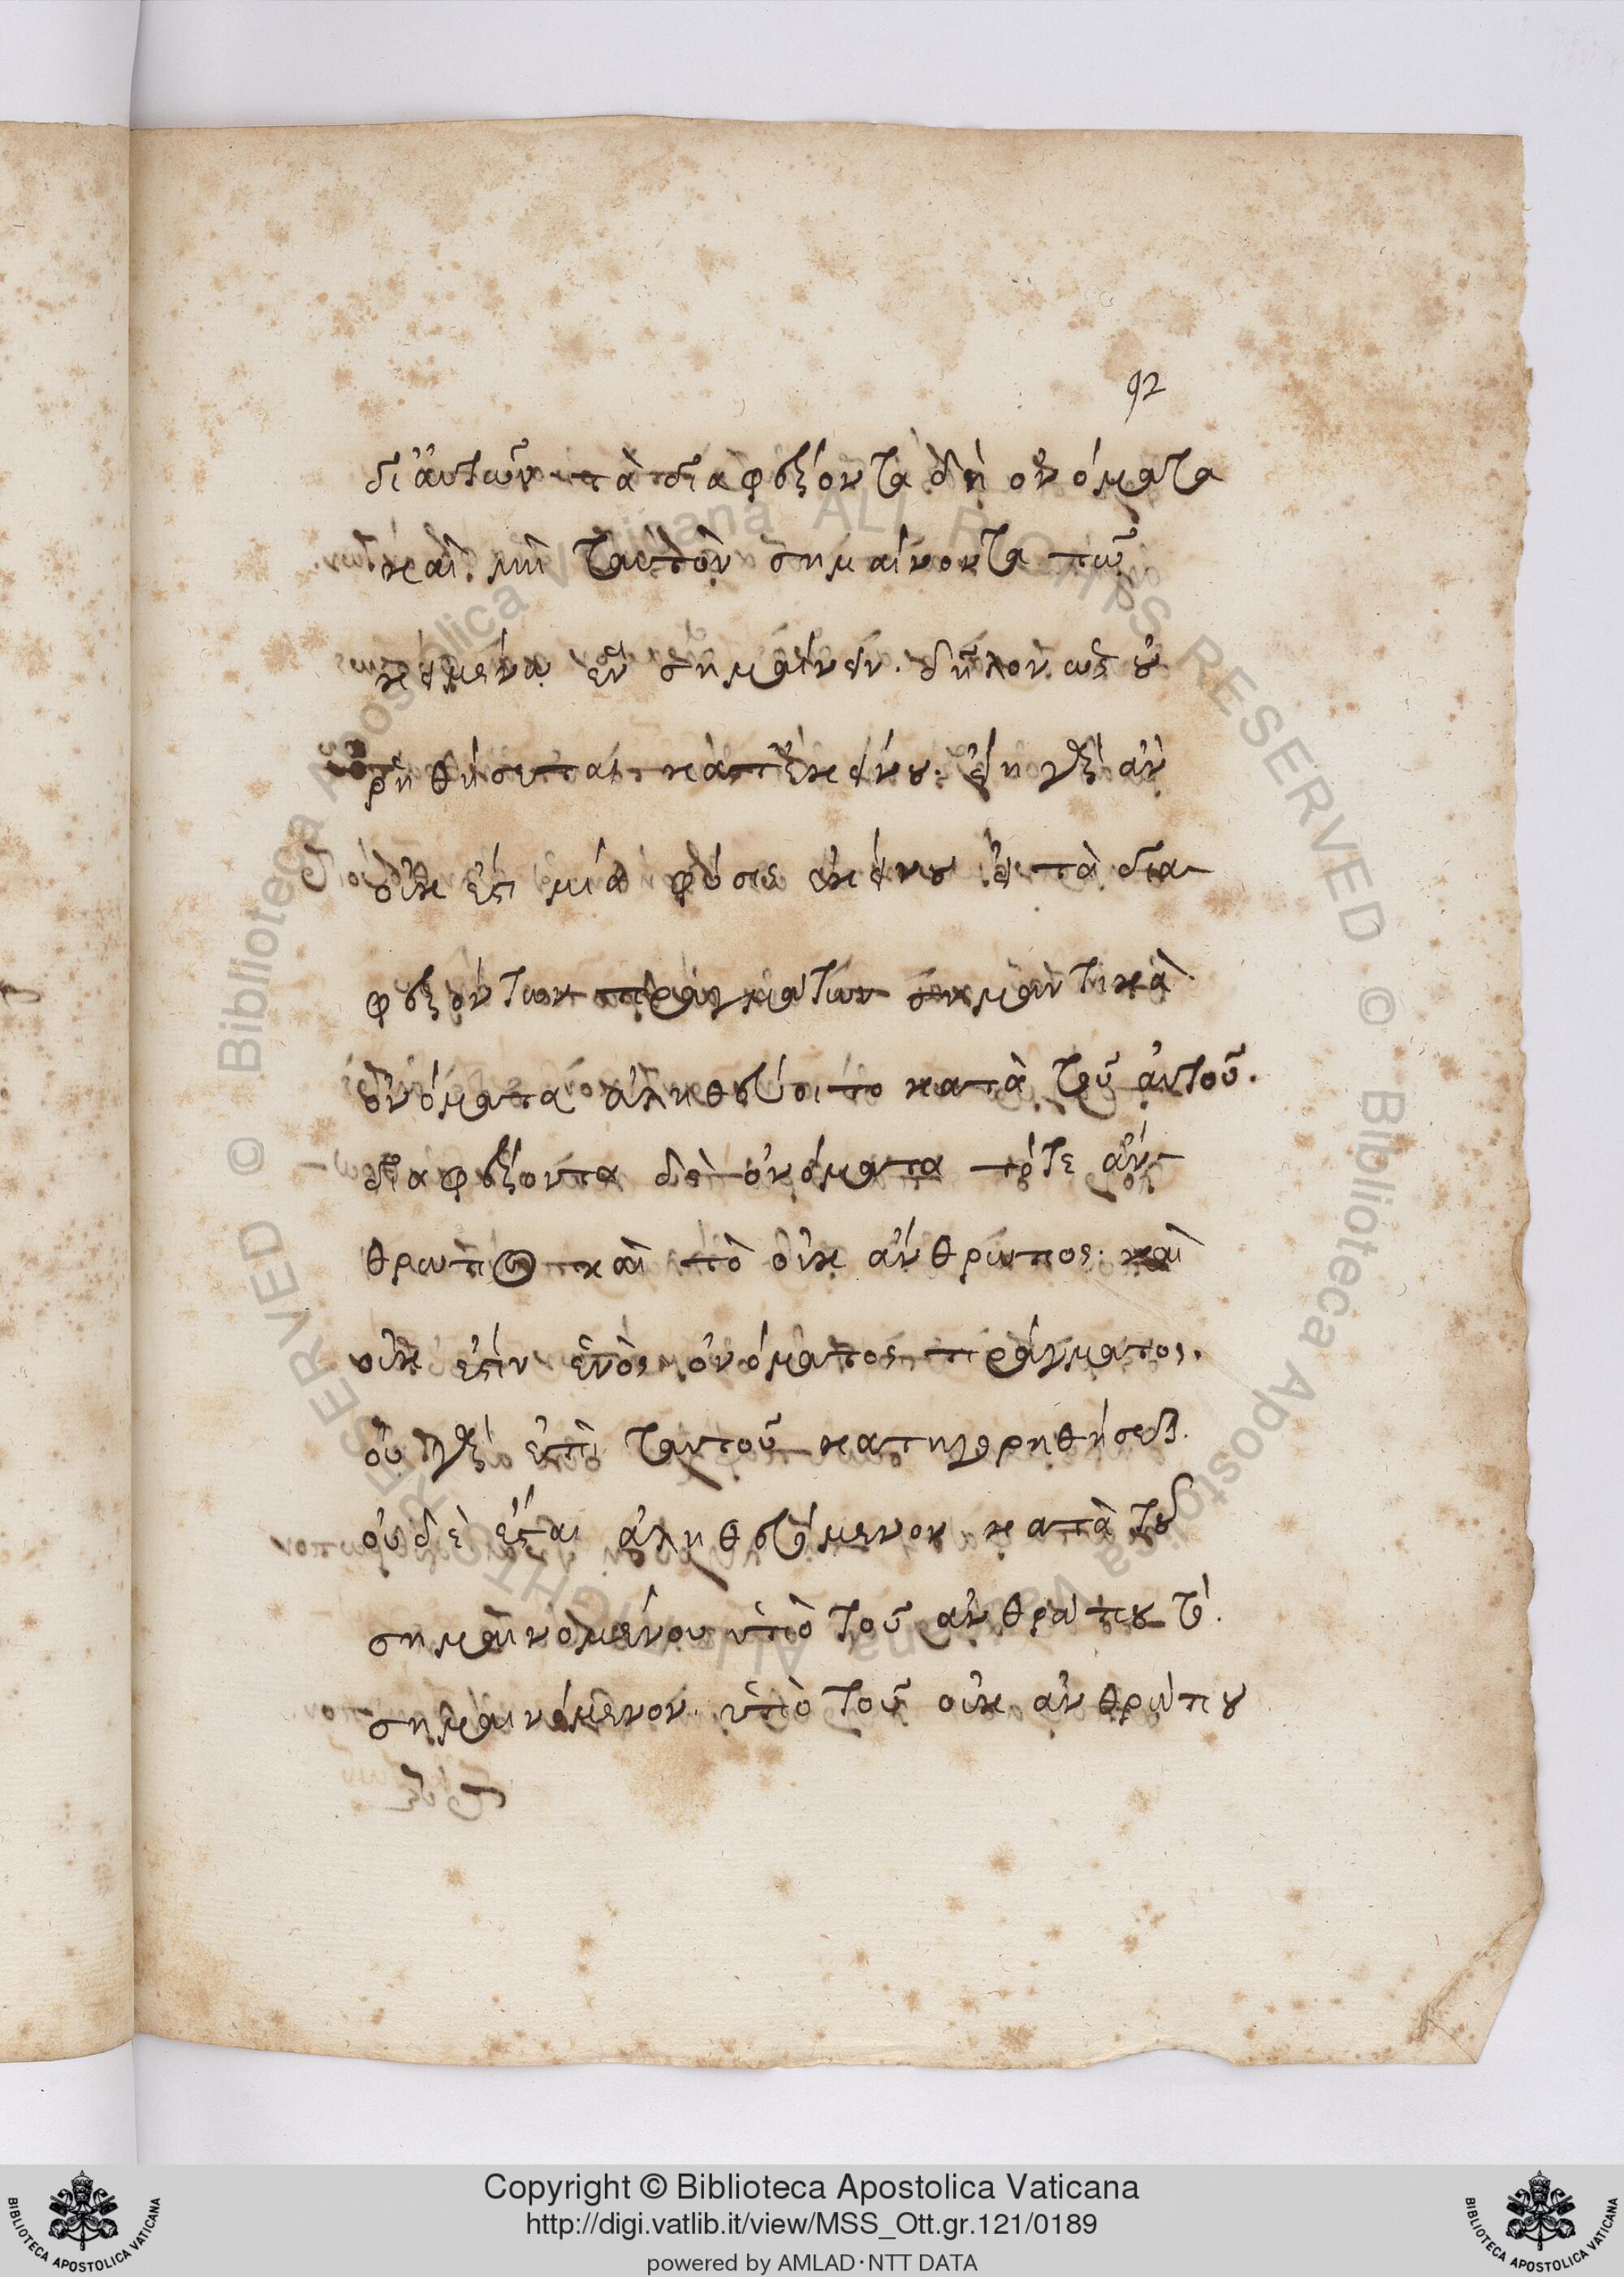 92
δι' αυτῶν τὰ διαφέροντα δὴ ὀνόματα
καὶ μὴ ταυτὸν σημαίνοντα πῶς
κείμενα ἓν σημαίνειν. δῆλον ὡς οὐ
ῥηθήσεται κατ' ἐκείνου. εἰ γὰρ ἂν
οὐκ ἔστι μία φύσις ἐκείνου τὰ δια-
φερόντων πραγμάτων σημαντικὰ
ὀνόματα ἀληθεύοιτο κατὰ τοῦ αὐτοῦ.
διαφέροντα δὲ ὀνόματα τότε ἄν-
θρωπος καὶ τὸ οὐκ ἄνθρωπος. καὶ
οὐκ ἔστιν ἑνὸς ὀνόματος πράγματος.
οὐ γὰρ ἐπὶ ταυτοῦ κατηγορηθήσεται.
οὐδὲ ἔσται ἀληθευόμενον κατὰ τοῦ
σημαινομένου ὑπὸ τοῦ ἀνθρώπου τὸ
σημαινόμενον ὑπὸ τοῦ οὐκ ἀνθρώπου
Copyright © Biblioteca Apostolica Vaticana
http://digi.vatlib.it/view/MSS_Ott.gr.121/0189
powered by AMLAD·NTT DATA
BIBLIOTECA APOSTOLICA VATICANA
BIBLIOTECA APOSTOLICA VATICANA
© Biblioteca Apostolica Vaticana ALL RIGHTS RESERVED © Biblioteca Apostolica Vaticana ALL RIGHTS RESERVED